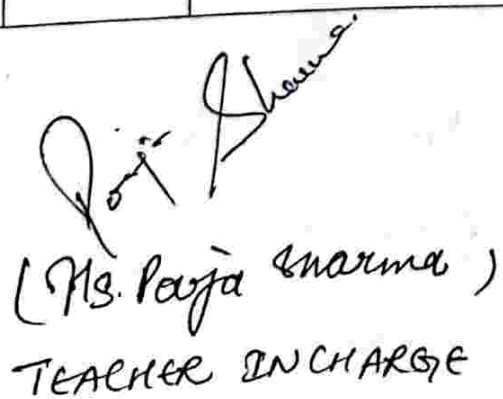 Pooja Sharma.
(Ms. Pooja Sharma)
TEACHER INCHARGE